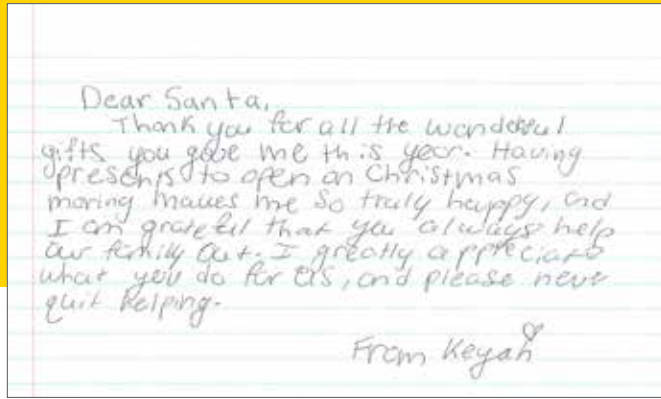 Dear Santa,
Thank you for all the wonderful
gifts you gave me this year. Having
presents to open on Christmas
moring makes me so truly happy, and
I am grateful that you always help
our family out. I greatly appreciate
what you do for us, and please never
quit helping.
From Keyah